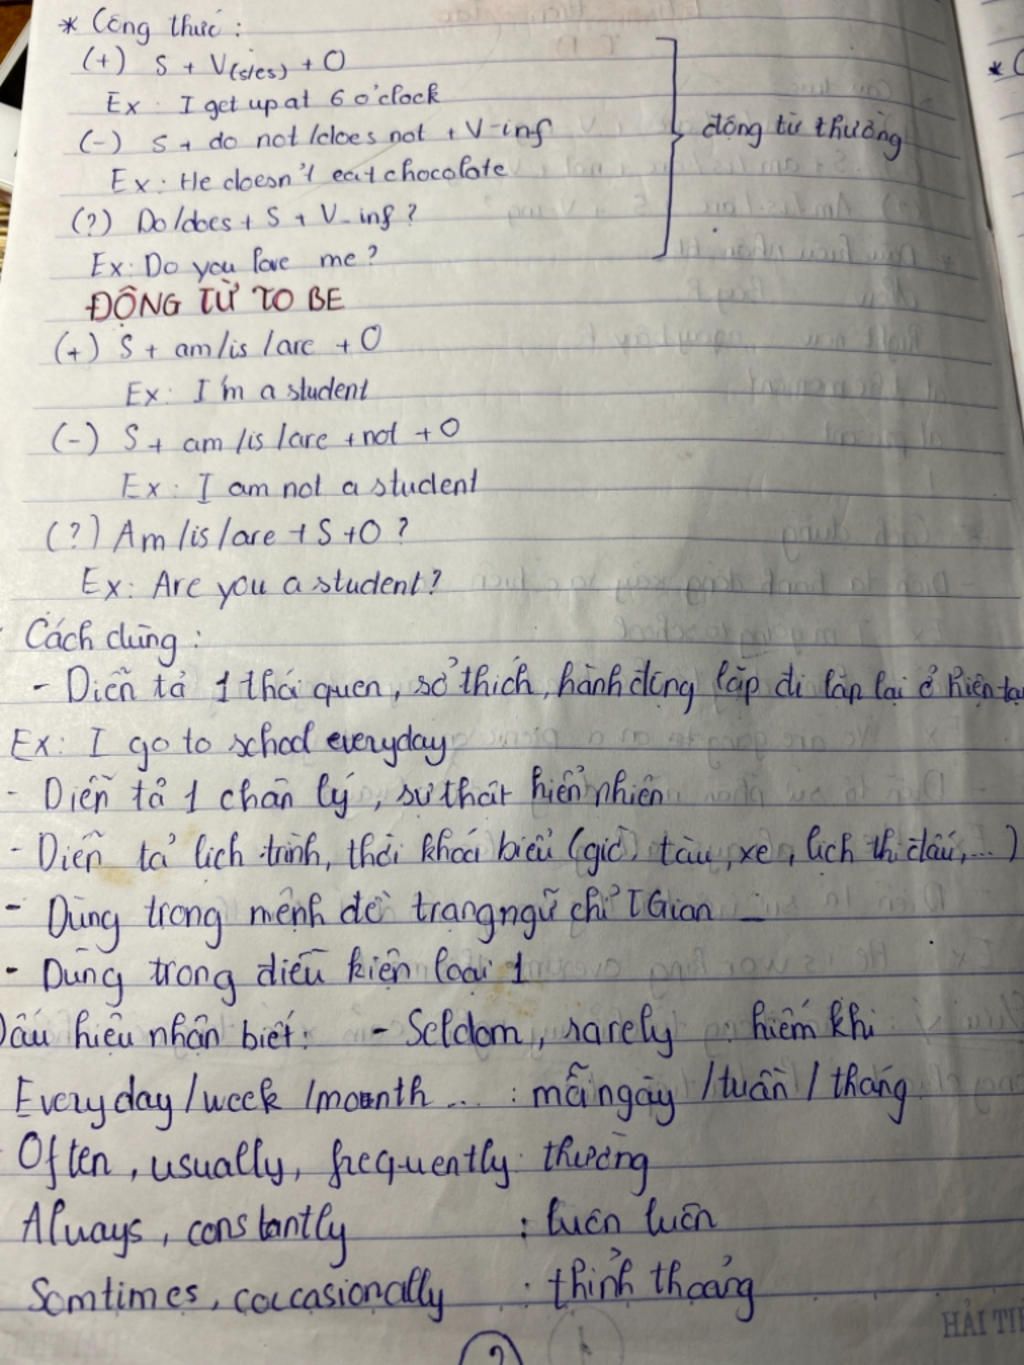 * Công thức :
(+) S + V(s/es) + O
Ex : I get up at 6 o'clock
(-) S + do not /does not + V-inf
động từ thường
Ex : He doesn't eat chocolate
(?) Do/does + S + V-inf ?
Ex: Do you love me ?
ĐỘNG TỪ TO BE
(+) S + am/is /are + O
Ex: I'm a student
(-) S + am /is /are + not + O
Ex : I am not a student
(?) Am /is /are + S + O ?
Ex: Are you a student?
Cách dùng :
- Diễn tả 1 thói quen, sở thích, hành động lặp đi lặp lại ở hiện tại
Ex: I go to school everyday
- Diễn tả 1 chân lý, sự thật hiển nhiên
- Diễn tả lịch trình, thời khoá biểu (giờ tàu, xe, lịch thi đấu,...)
- Dùng trong mệnh đề trạng ngữ chỉ TGian
- Dùng trong điều kiện loại 1
Dấu hiệu nhận biết: - Seldom, rarely : hiếm khi
Everyday /week /month ... : mỗi ngày /tuần / tháng
Often, usually, frequently : thường
Always, constantly : luôn luôn
Somtimes, occasionally : thỉnh thoảng
HẢI TI
2